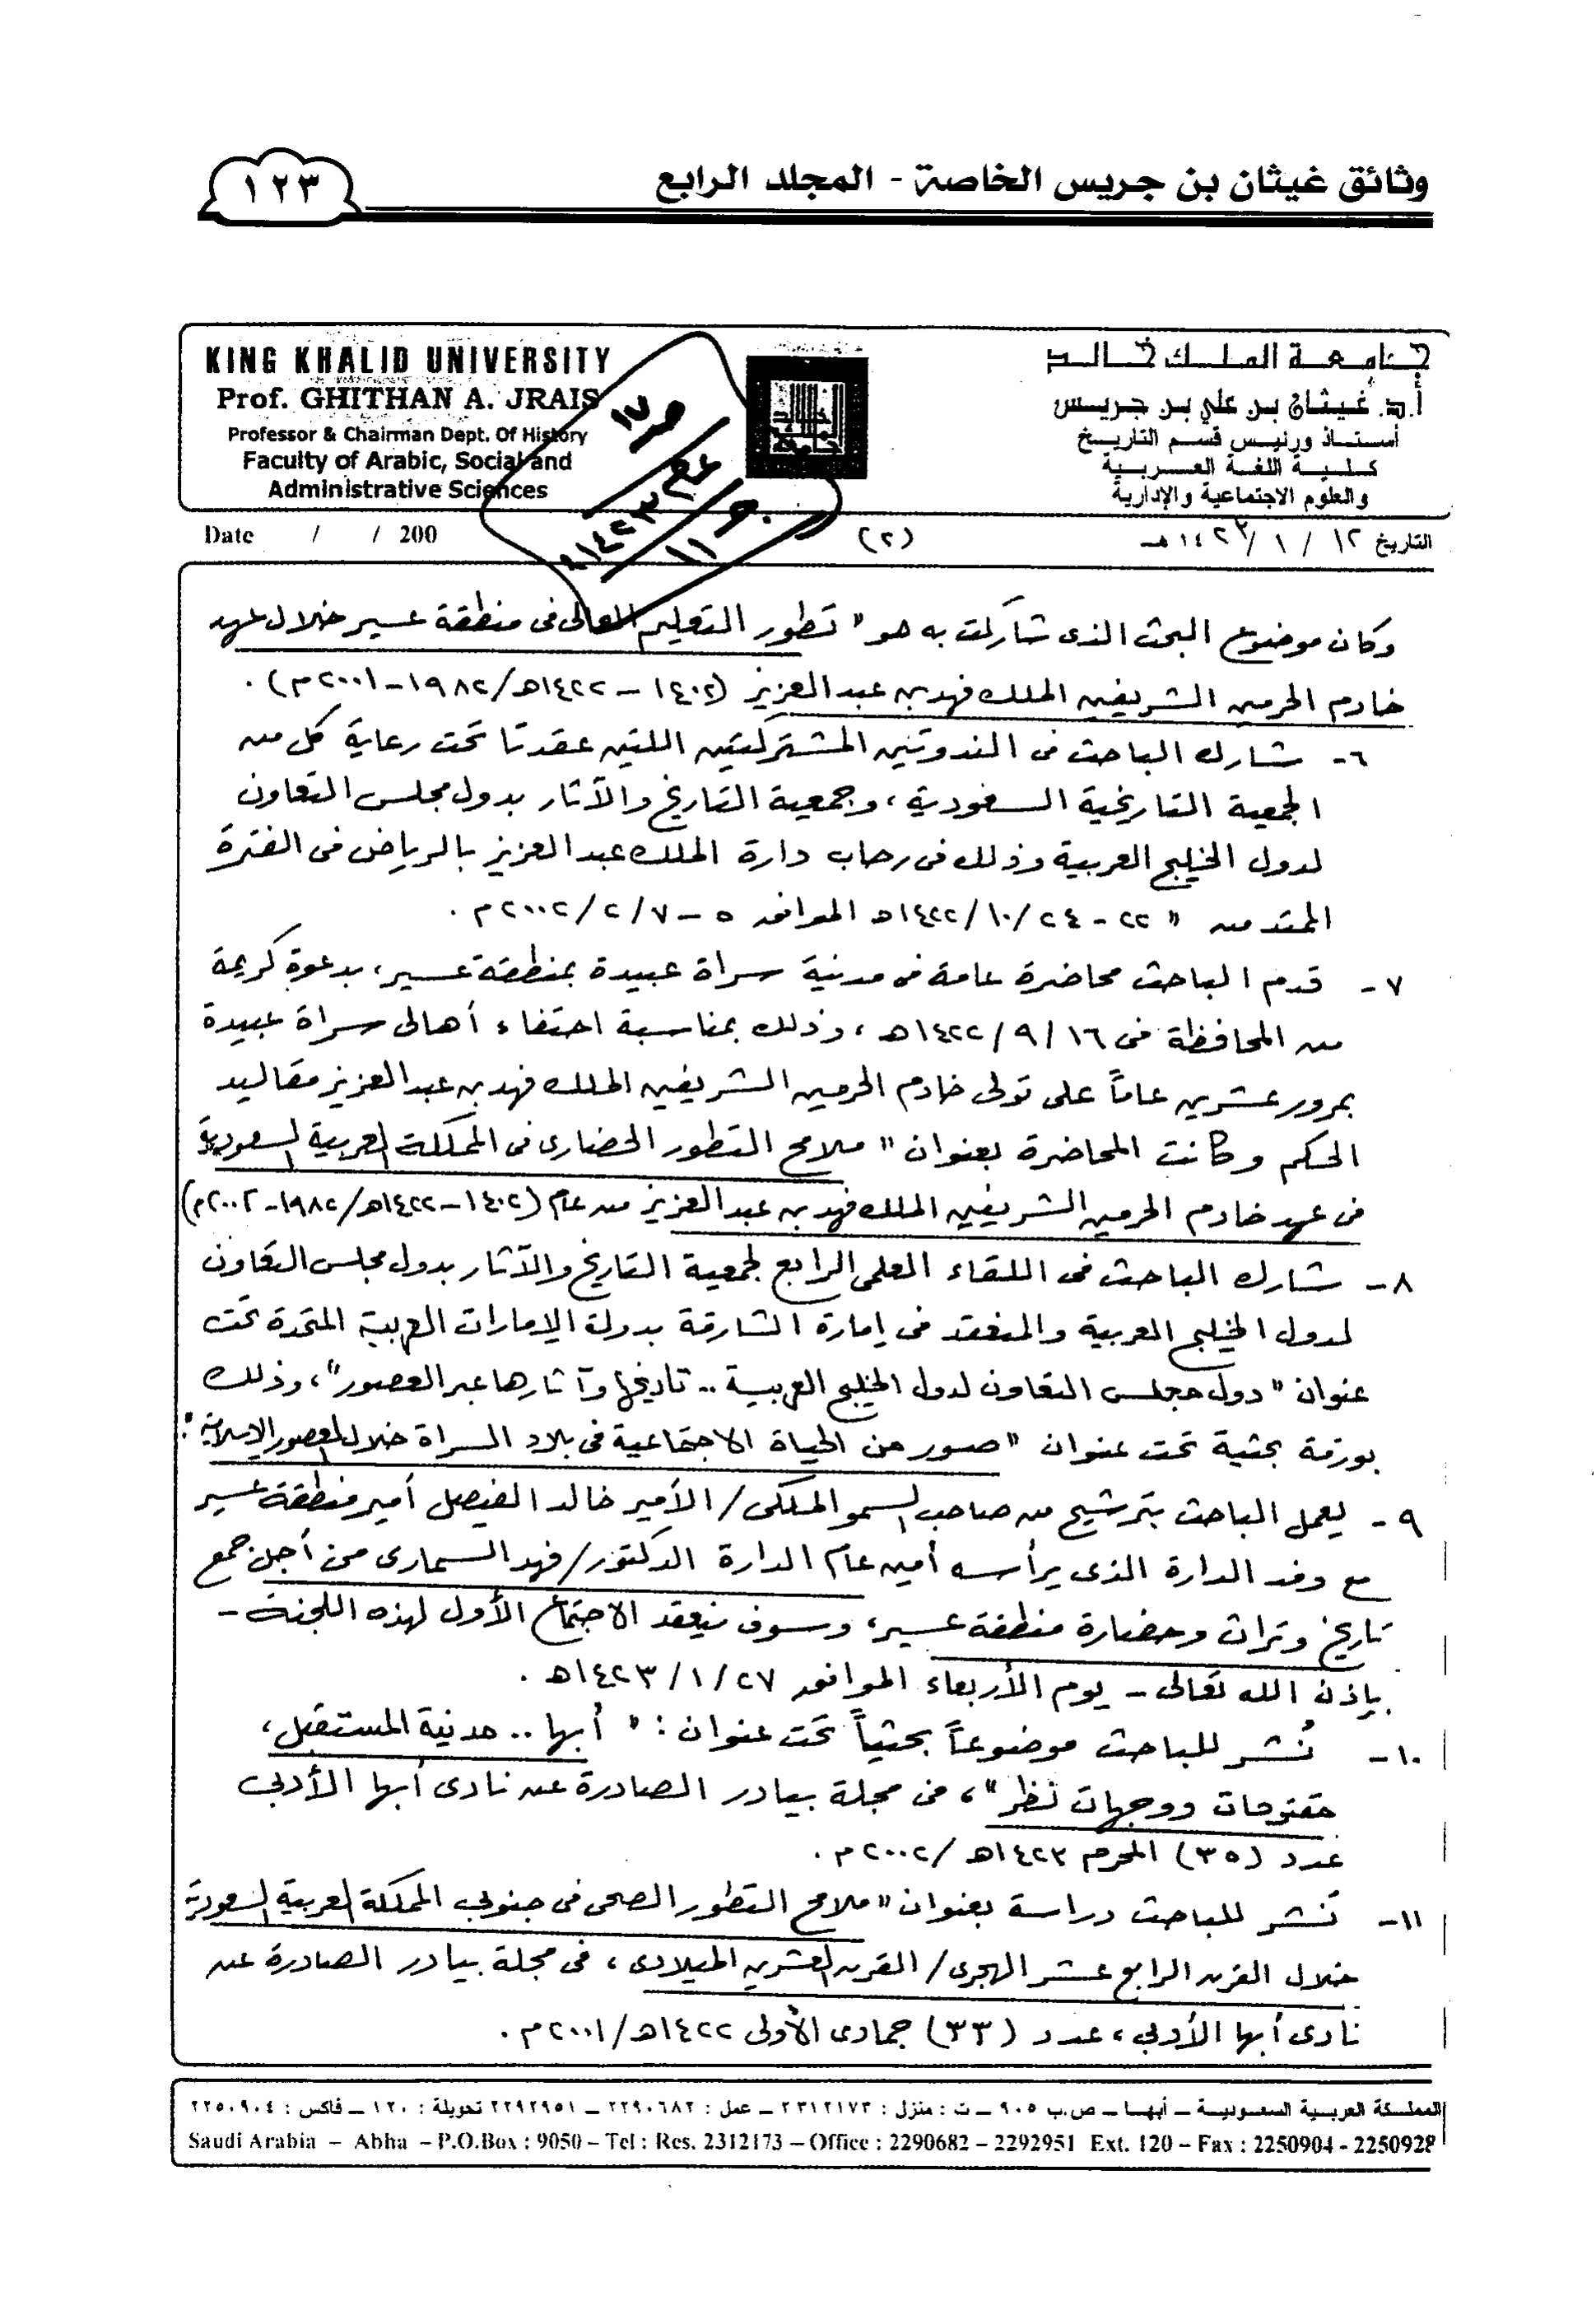 وثائق غيثان بن جريس الخاصة - المجلد الرابع
١٢٣
KING KHALID UNIVERSITY
Prof. GHITHAN A. JRAIS
Professor & Chairman Dept. Of History
Faculty of Arabic, Social and
Administrative Sciences
جامعة الملك خالد
أ.د. غيثان بن علي بن جريس
أستاذ ورئيس قسم التاريخ
كلية اللغة العربية
والعلوم الاجتماعية والإدارية
ص ١٧
١٤٢٣هـ
ج ١١
Date / / 200
(٢)
التاريخ ١٢ / ١ / ١٤٢٣ هـ
وكان موضوع البحث الذى شاركت به هو " تطور التعليم العالى فى منطقة عسير خلال عهد
خادم الحرمين الشريفين الملك فهد بن عبد العزيز (١٤٠٢ – ١٤٢٢هـ/١٩٨٢ – ٢٠٠١م) .
٦- شارك الباحث فى الندوتين المشتركتين اللتين عقدتا تحت رعاية كل من
الجمعية التاريخية السعودية ، وجمعية التاريخ والآثار بدول مجلس التعاون
لدول الخليج العربية وذلك فى رحاب دارة الملك عبد العزيز بالرياض فى الفترة
الممتد من " ٢٢ - ٢٤ /١٠/ ١٤٢٢هـ الموافق ٥ – ٧ /٢/ ٢٠٠٢م .
٧- قدم الباحث محاضرة عامة فى مدنية سراة عبيدة بمنطقة عسير ، بدعوة كريمة
من المحافظة فى ١٦ /٩/ ١٤٢٢هـ ، وذلك بمناسبة احتفاء أهالى سراة عبيدة
بمرور عشرين عاماً على تولى خادم الحرمين الشريفين الملك فهد بن عبد العزيز مقاليد
الحكم وكانت المحاضرة بعنوان " ملامح التطور الحضارى فى المملكة العربية السعودية
فى عهد خادم الحرمين الشريفين الملك فهد بن عبد العزيز من عام (١٤٠٢ – ١٤٢٢هـ/١٩٨٢ - ٢٠٠٢م)
٨- شارك الباحث فى اللقاء العلمى الرابع لجمعية التاريخ والآثار بدول مجلس التعاون
لدول الخليج العربية والمنعقد فى إمارة الشارقة بدولة الإمارات العربية المتحدة تحت
عنوان " دول مجلس التعاون لدول الخليج العربية .. تاريخها وآثارها عبر العصور " ، وذلك
بورقة بحثية تحت عنوان " صور من الحياة الاجتماعية فى بلاد السراة خلال العصور الإسلامية " .
٩- يعمل الباحث بترشيح من صاحب السمو الملكى / الأمير خالد الفيصل أمير منطقة عسير
مع وفد الدارة الذى يرأسه أمين عام الدارة الدكتور / فهد السمارى من أجل جمع
تاريخ وتراث وحضارة منطقة عسير ، وسوف ينعقد الاجتماع الأول لهذه اللجنة –
بإذن الله تعالى – يوم الأربعاء الموافق ٢٧ /١/ ١٤٢٣هـ .
١٠- نُشر للباحث موضوعاً بحثياً تحت عنوان : " أبها .. مدنية المستقبل ،
مقترحات ووجهات نظر " ، فى مجلة بيادر الصادرة عن نادى أبها الأدبى
عدد (٣٥) المحرم ١٤٢٣هـ / ٢٠٠٢م .
١١- نُشر للباحث دراسة بعنوان " ملامح التطور الصحى فى جنوبى المملكة العربية السعودية
خلال القرن الرابع عشر الهجرى / القرن العشرين الميلادى ، فى مجلة بيادر الصادرة عن
نادى أبها الأدبى ، عدد (٣٣) جمادى الأولى ١٤٢٢هـ/٢٠٠١م .
المملكة العربية السعودية – أبها – ص.ب ٩٠٥ – ت : منزل : ٢٣١٢١٧٣ – عمل : ٢٢٩٠٦٨٢ – ٢٢٩٢٩٥١ تحويلة : ١٢٠ – فاكس : ٢٢٥٠٩٠٤
Saudi Arabia – Abha – P.O.Box : 9050 – Tel : Res. 2312173 – Office : 2290682 – 2292951 Ext. 120 – Fax : 2250904 - 2250928